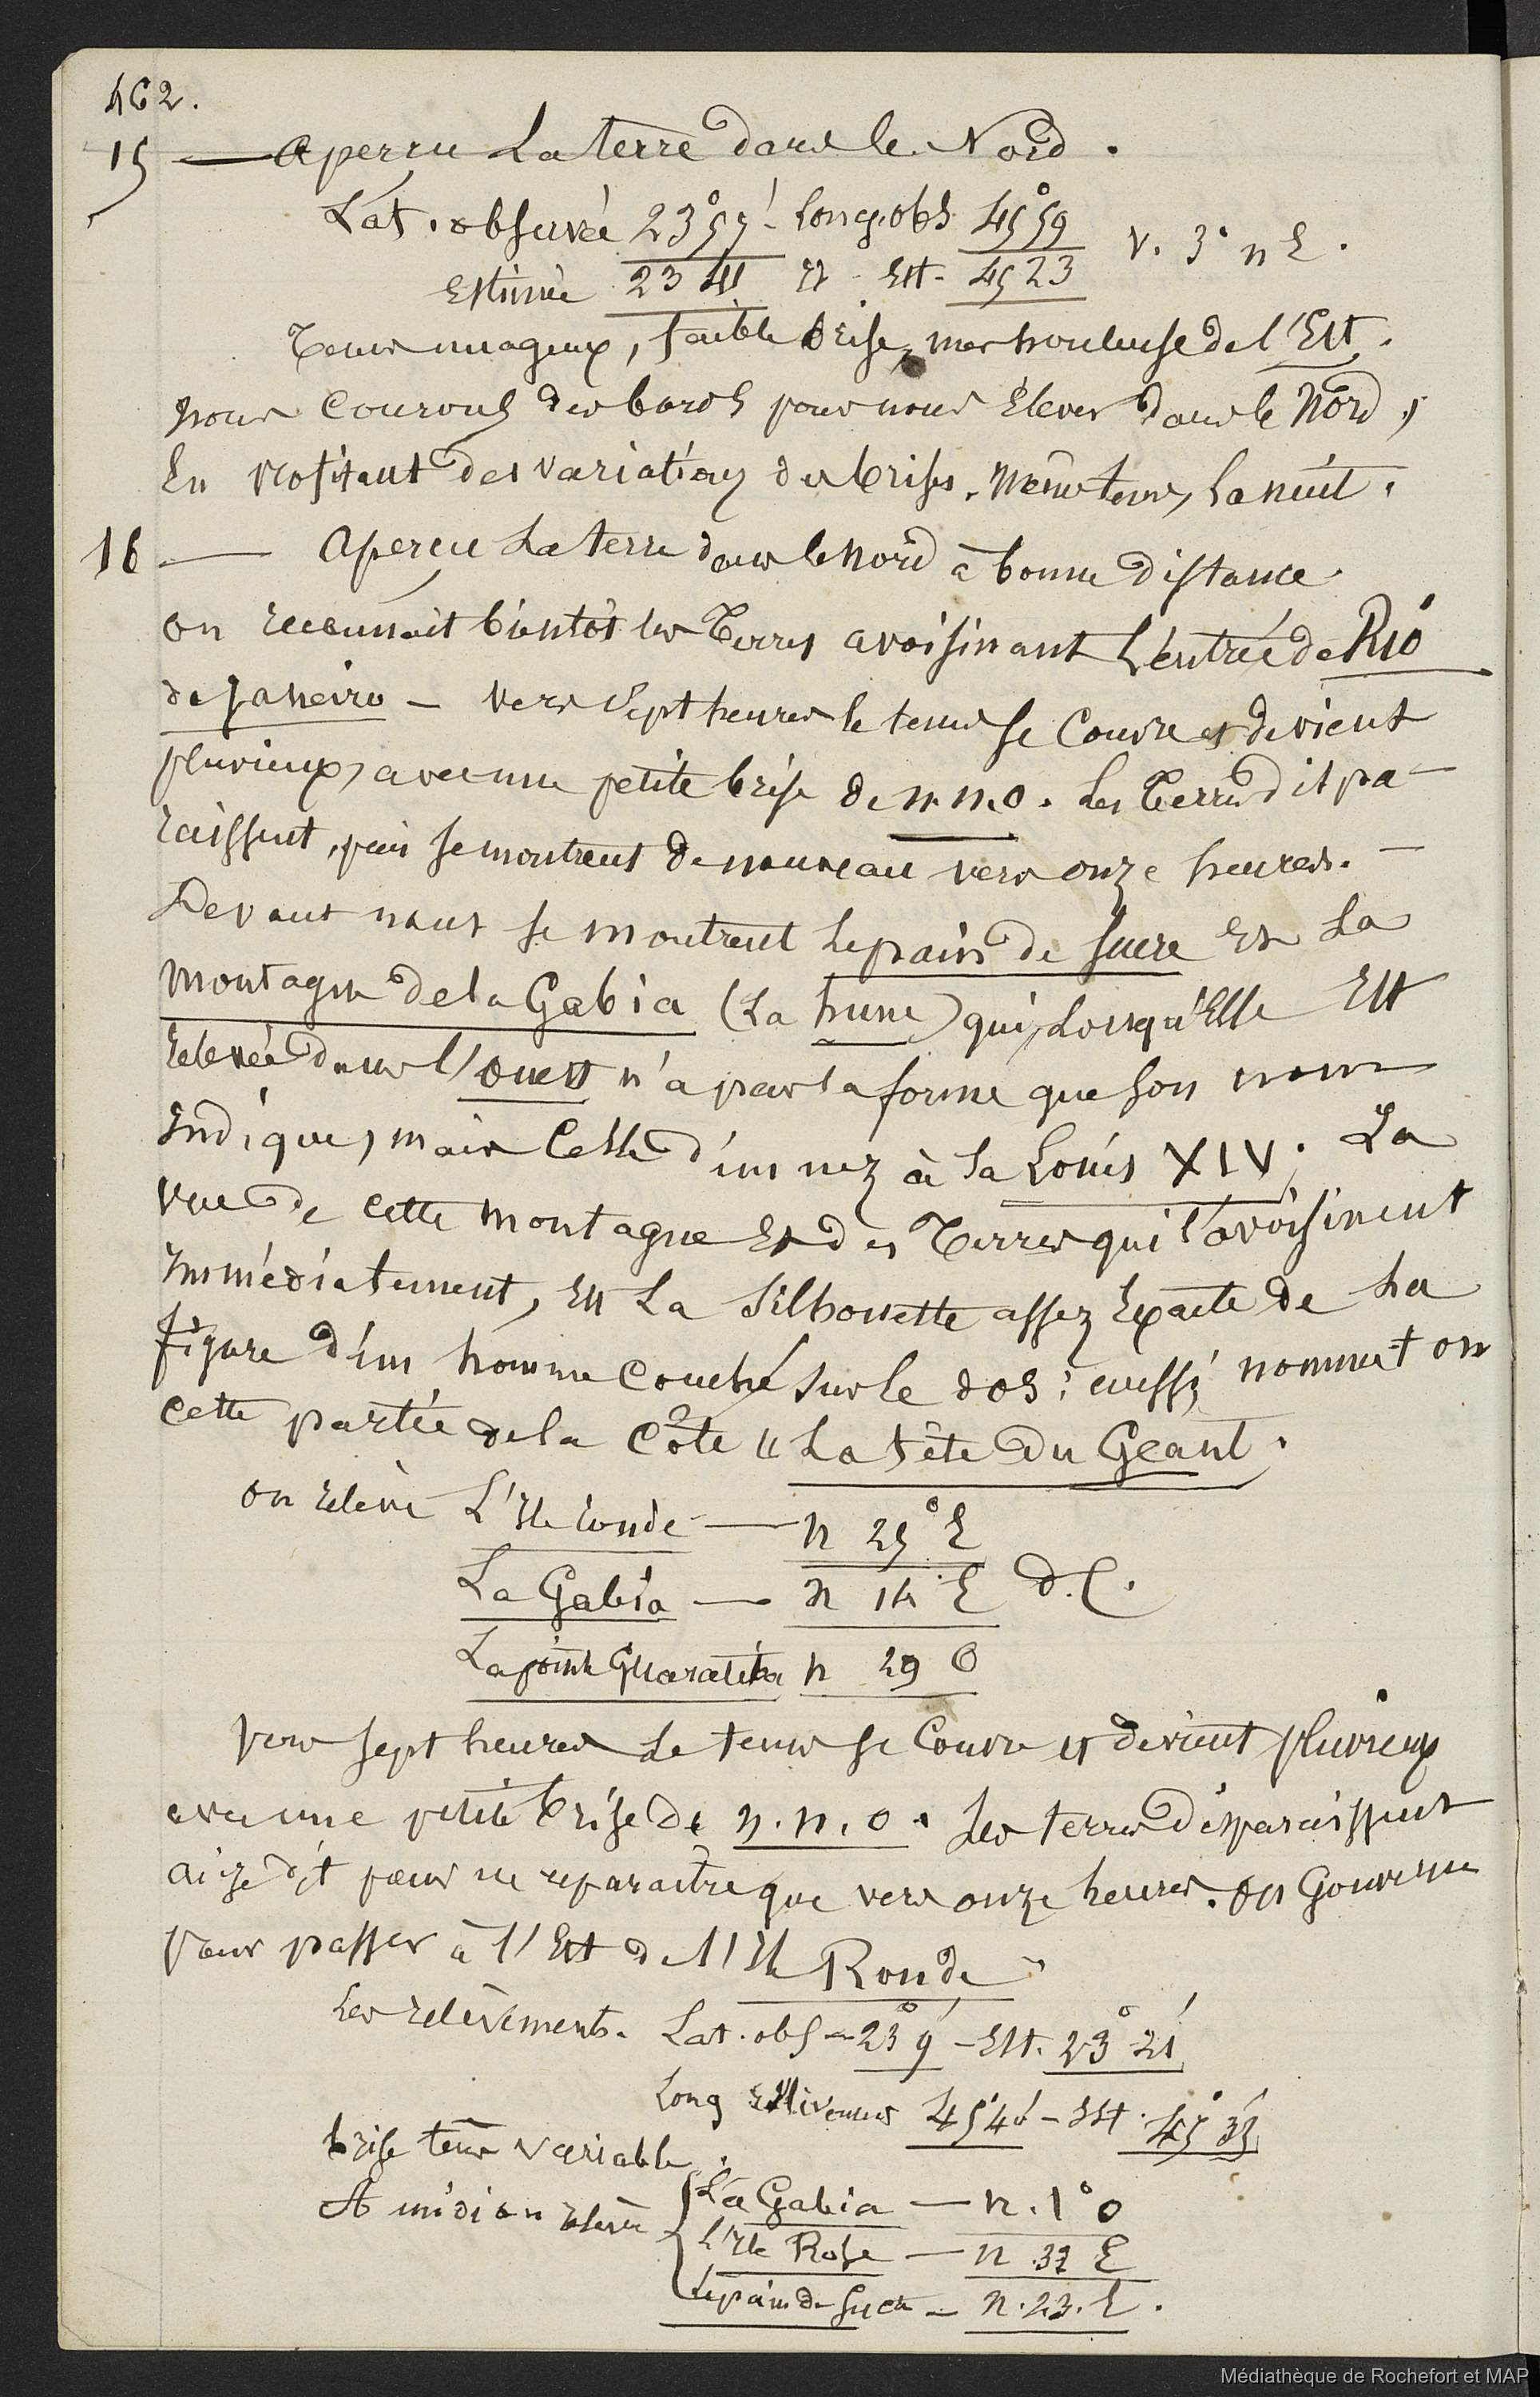 462.
15 — aperçu La terre dans le Nord.
Lat. observée 23°57' Long. obs 45°59 V. 3° n E.
Estimée 23 41 d° Est. 45 23
Tems nuageux, faible brise, mer houleuse de l'Est.
nous Courons des bords pour nous Elever dans le Nord,
En profitant des variations des brises. Même tems, la nuit.
16 — aperçu La terre dans le nord à bonne distance.
on reconnait bientôt les Terres avoisinant L'entrée de Rio
de Janeiro — vers Sept heures le tems se Couvre et devient
pluvieux, avec une petite brise de n.n.o. Les Terres dispa-
raissent, puis se montrent de nouveau vers onze heures. —
Devant nous se montrent Le pain de sucre Et La
Montagne de la Gabia (La hune) qui, Lorsqu'Elle Est
relevée dans l'ouest n'a pas la forme que son nom
Indique, mais Celle d'un nez à la Louis XIV. La
vue de cette montagne Et des Terres qui l'avoisinent
Immédiatement, Est La Silhouette assez Exacte de la
figure d'un homme Couché sur le dos; aussi nomme t on
cette partie de la Côte " La tête du Geant.
on relève L'Ile ronde — n 25° E
La Gabia — n 14 E d. C.
La pointe Guaratiba n 29 O
Vers sept heures Le tems se Couvre et devient pluvieux
avec une petite brise de n.n.o. Les terres disparaissent
ai-je dit pour ne reparaitre que vers onze heures. on Gouverne
pour passer à l'Est de l'Ile Ronde
Les relèvements. Lat. obs — 23° 9' — Est. 23° 21'
Long 45°40' — Est. 45° 35'
brise tems variable.
A midi on relève La Gabia — n. 1° o
L'Ile Rase — n 32 E
Le pain de Sucre — n. 23. E.
Médiathèque de Rochefort et MAP